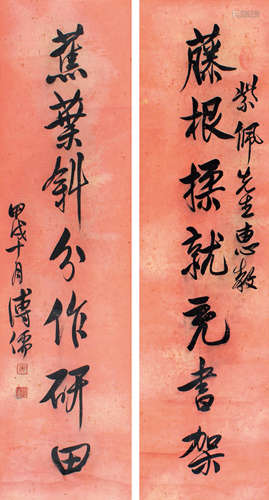 藤根揉就充書架
紫佩先生惠教
蕉葉斜分作研田
甲戌十月溥儒